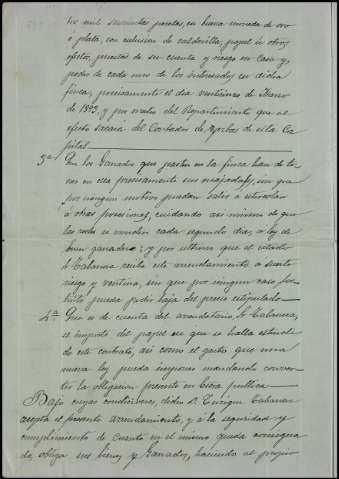 tro mil seiscientas pesetas, en buena moneda de oro
ó plata, con esclusion de calderilla, papel ú otros
efectos, puestas de su cuenta y riesgo en casa y
poder de cada uno de los interesados en dicha
finca, precisamente el dia veintiuno de Marzo
de 1893, y por medio del Repartimiento que al
efecto sacará del Contador de yerbas de esta Ca
pital
3ª Que los Ganados que pasten en la finca han de te
ner en ella precisamente sus majadas, sin que
por ningun motivo puedan salir á
ó otras posesiones, cuidando asi mismo de que
las redes se muden cada segundo dia, á ley de
buen ganadero; y por ultimo que el citado
Sr Cabanas recibe este arrendamiento á suerte
riesgo y ventura, sin que por ningun caso, for
tuito pueda pedir baja del precio estipulado
4ª Que es de cuenta del arrendatario, Sr Cabanas,
el importe del papel en que se halla estendi
do este contrato, asi como el gasto que una
nueva ley pueda imponer mandando conver
tir la obligacion presente en letra publica
Bajo cuyas condiciones dicho D. Enrique Cabanas
acepta el presente arrendamiento, y á la seguridad y
cumplimiento de cuanto en el mismo queda consigna
do, obliga sus bienes y Ganados, haciendo el propio